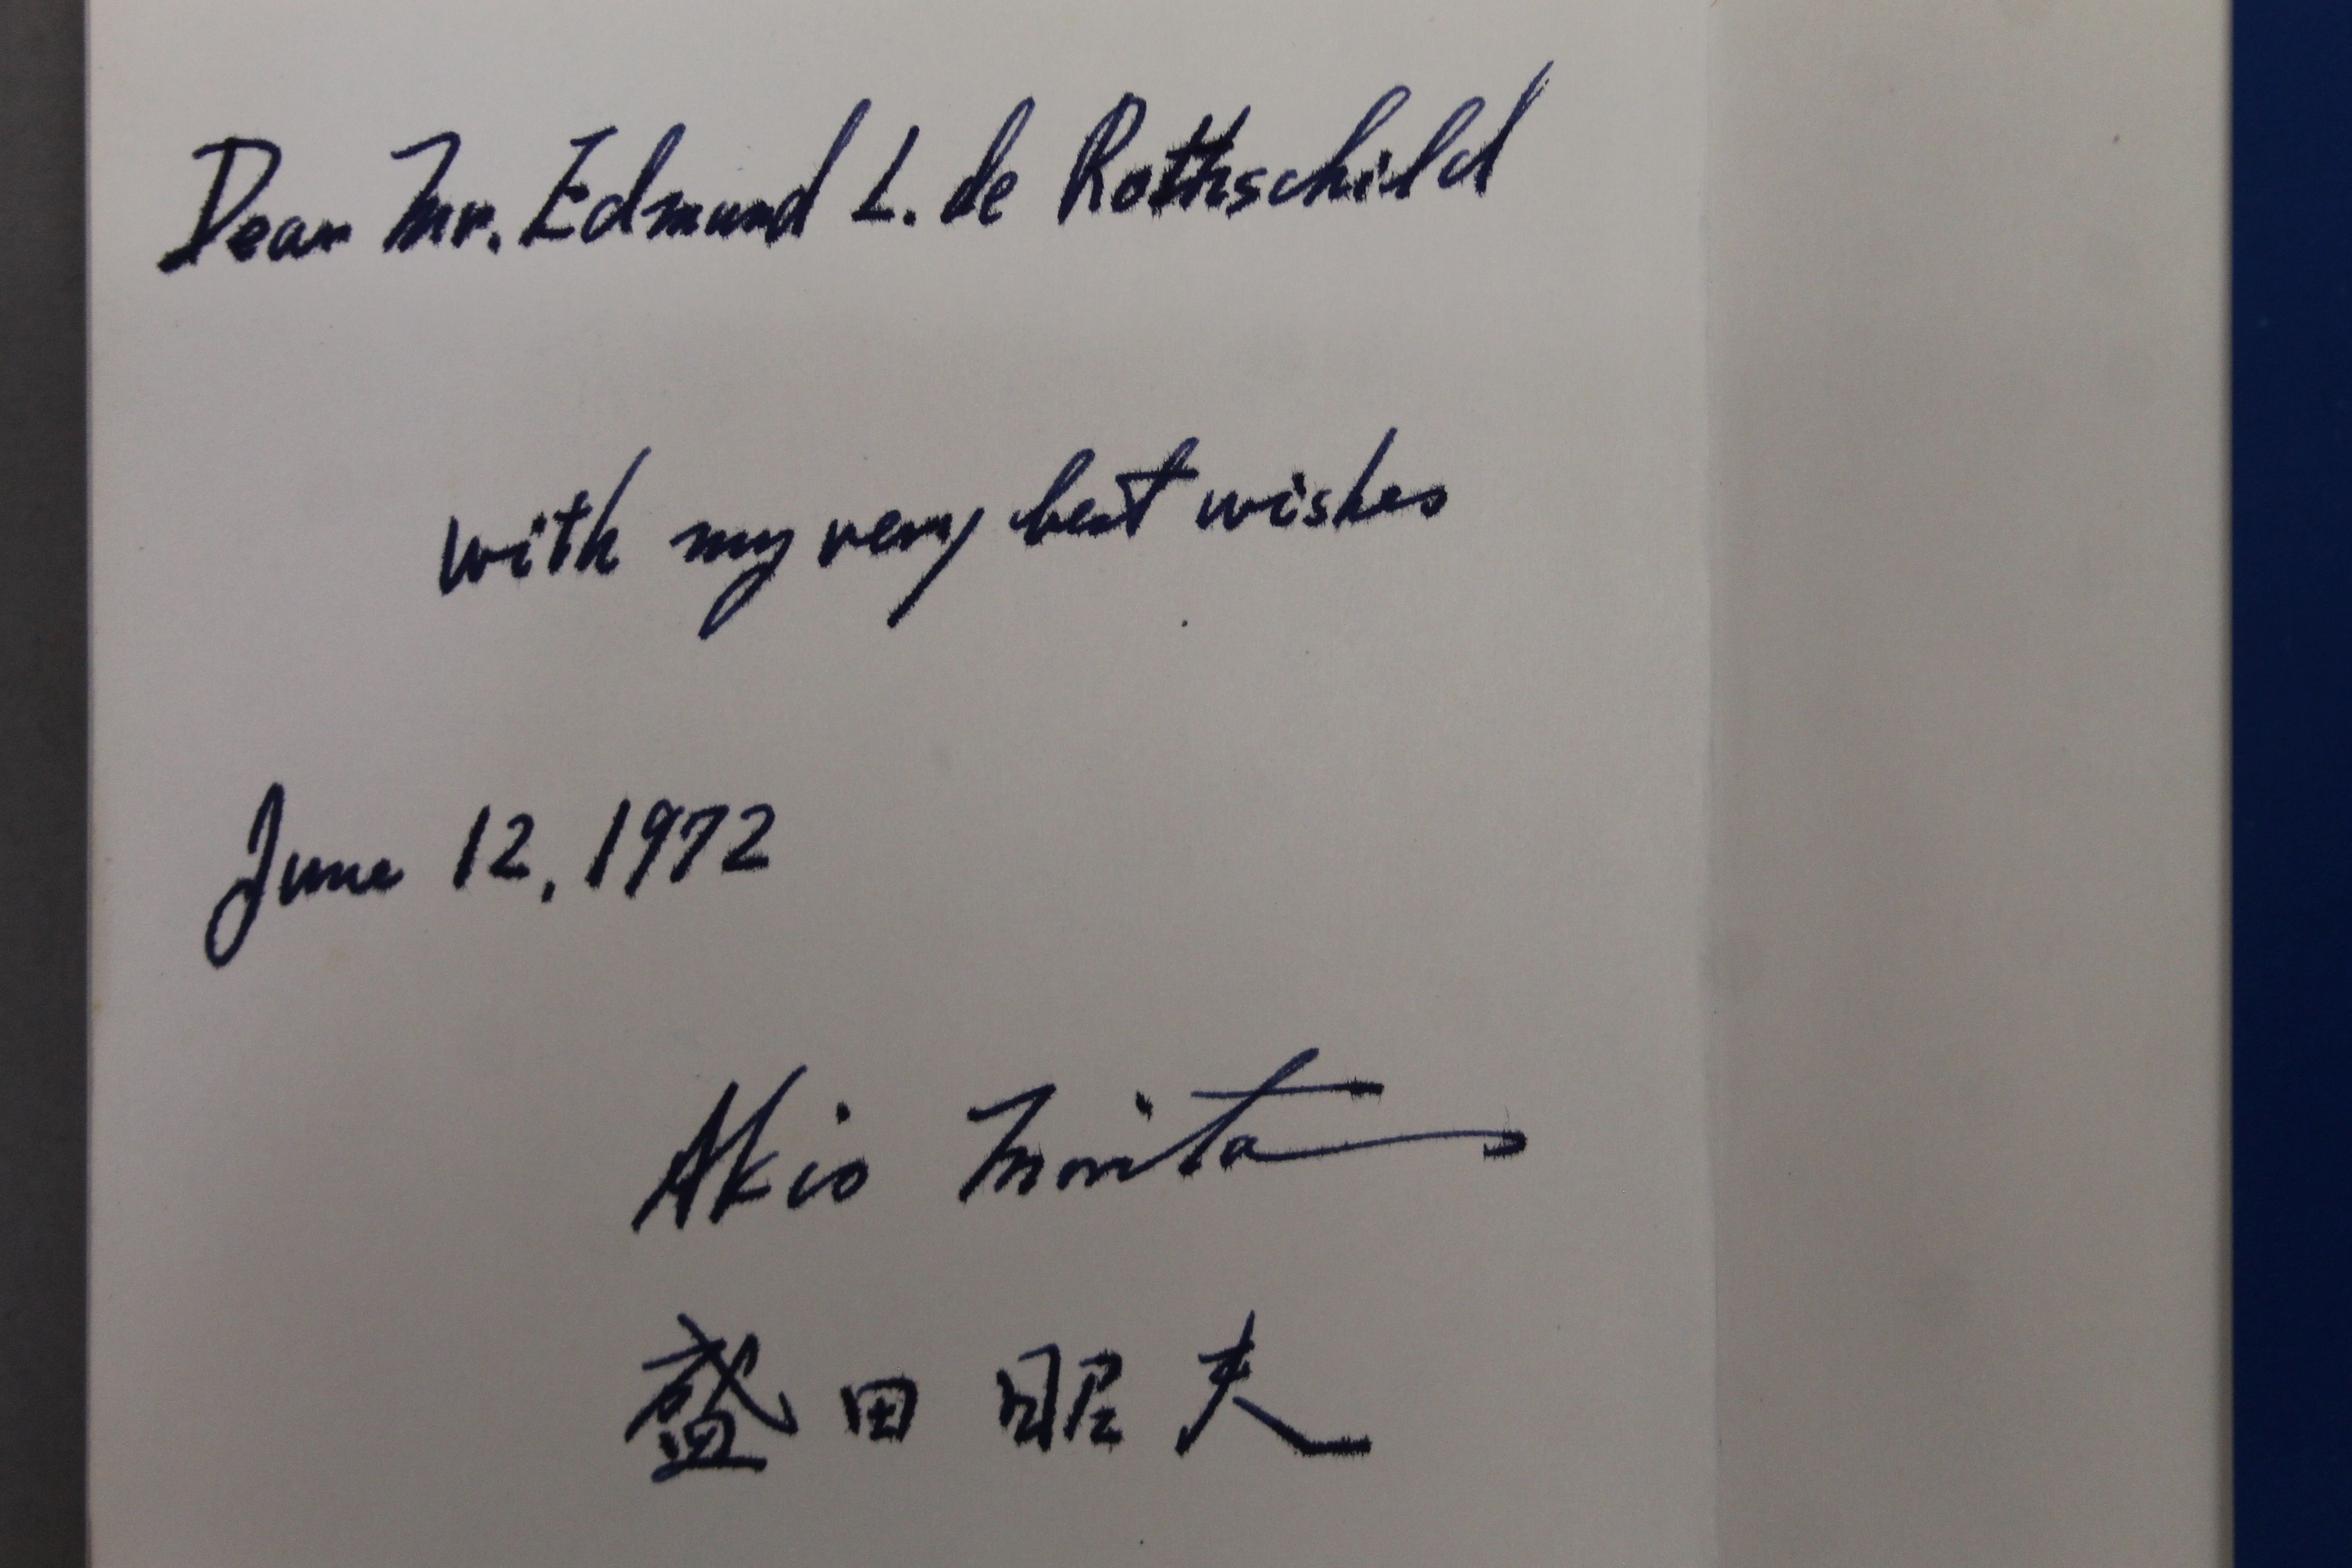 Dear Mr. Edmund L. de Rothschild
with my very best wishes
June 12, 1972
Akio Morita
盛田昭夫